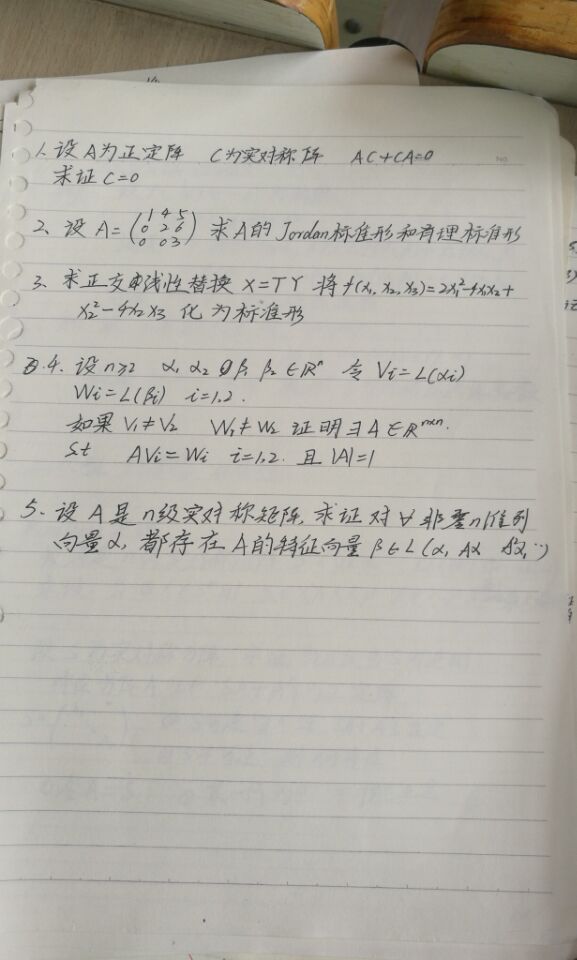 1. 设A为正定阵 C为实对称阵 AC+CA=0
求证 C=0
2、设 A=(1 4 5
0 2 6
0 0 3) 求A的Jordan标准形和有理标准形
3、求正交线性替换 X=TY 将 f(x₁, x₂, x₃)=2x₁²-4x₁x₂+
x₂²-4x₂x₃ 化为标准形
4. 设n≥2 α₁ α₂ β₁ β₂ ∈Rⁿ 令 Vi=L(αi)
Wi=L(βi) i=1,2.
如果 V₁≠V₂ W₁≠W₂ 证明 ∃A∈Rⁿˣⁿ.
st AVi=Wi i=1,2. 且 |A|=1
5、设A是n级实对称矩阵, 求证对∀非零n维列
向量α, 都存在A的特征向量 β∈L(α, Aα, A²α, …)